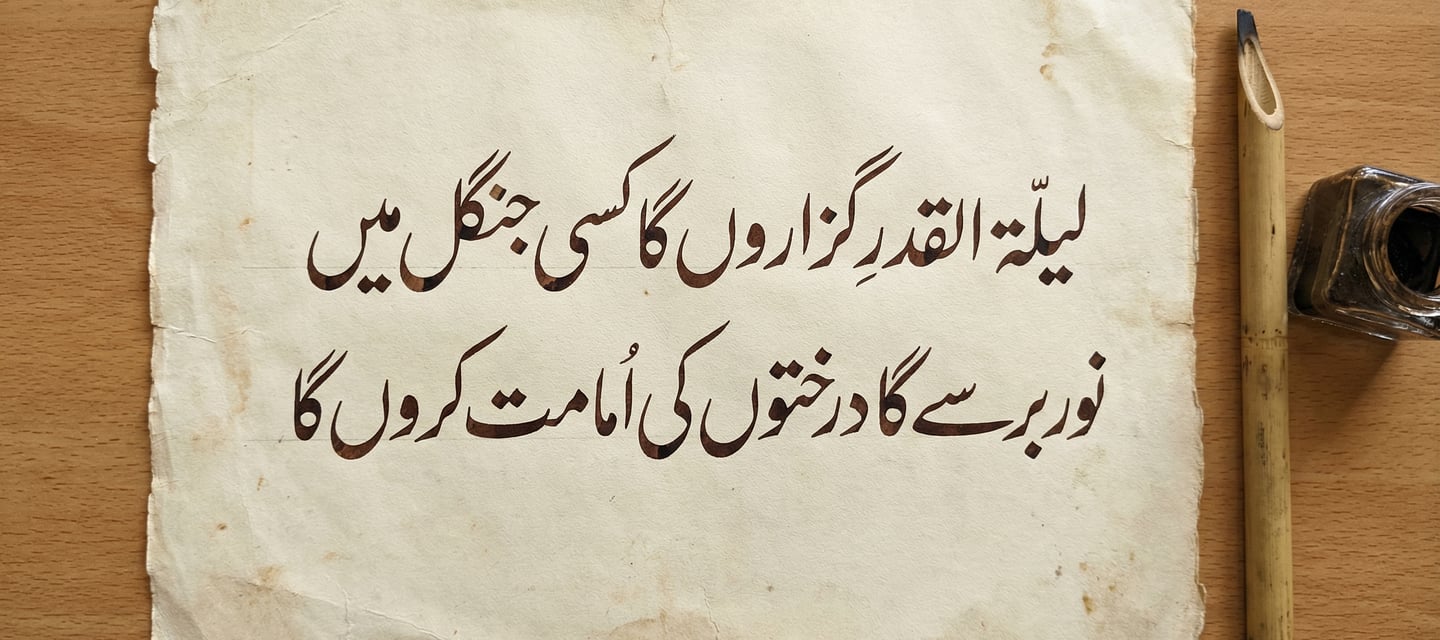 لیلّۃ القدرِ گزاروں گا کسی جنگل میں
نور برسے گا درختوں کی اُمامت کروں گا